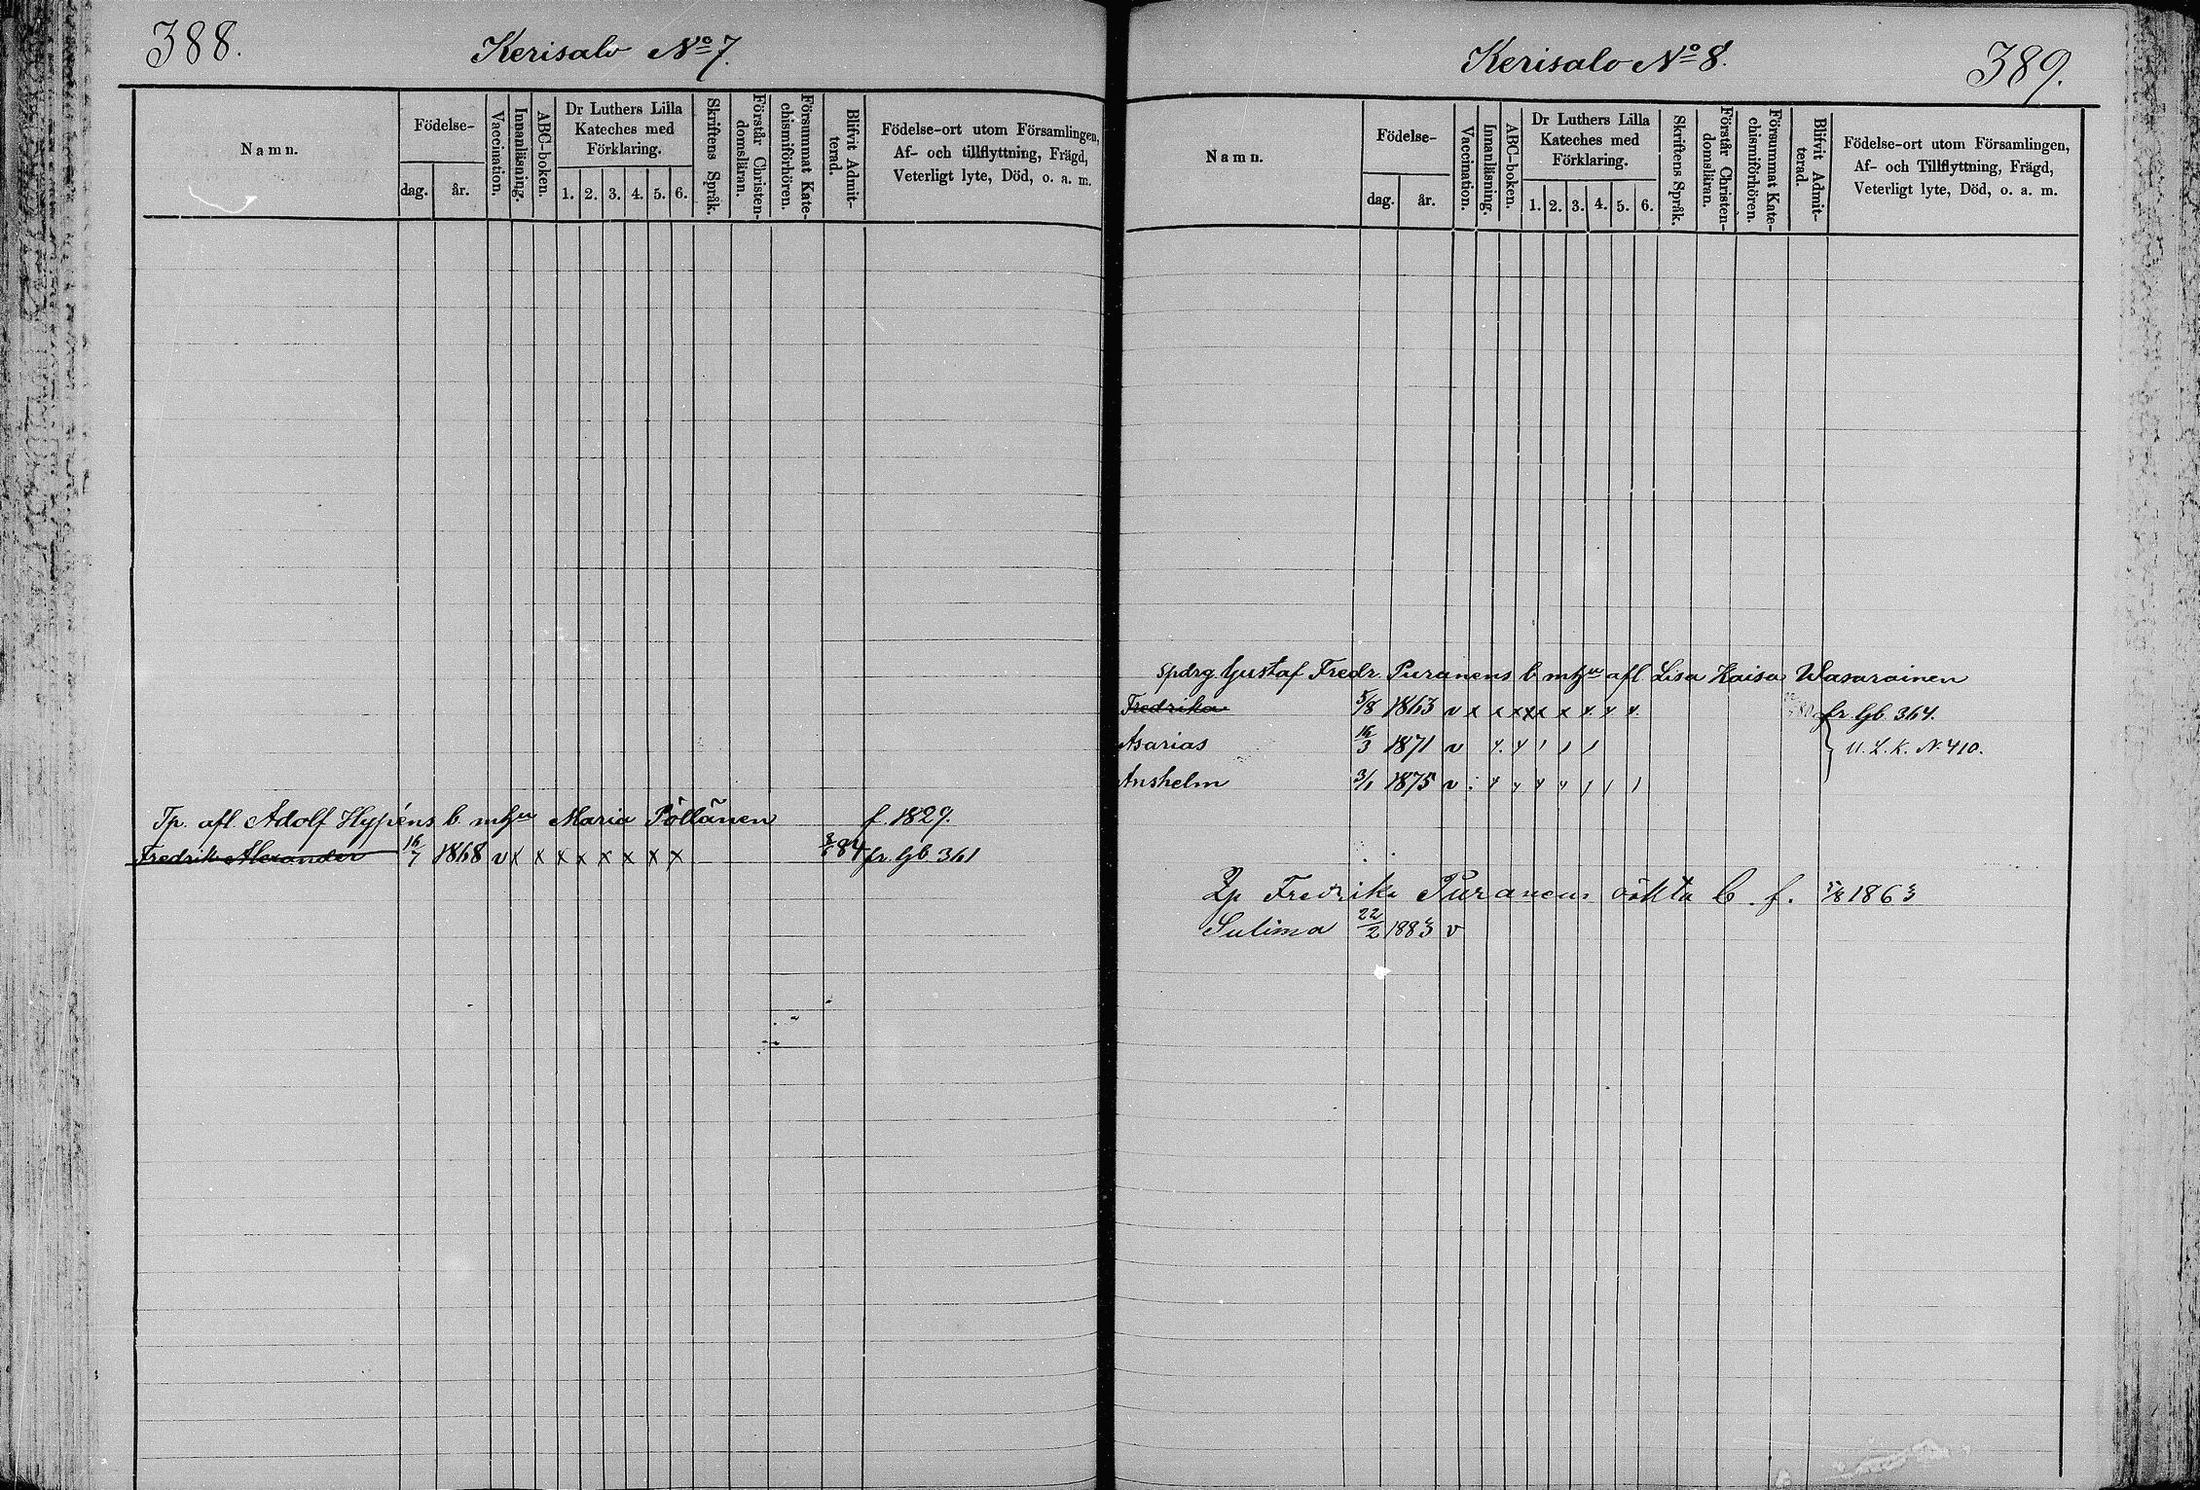 388.
Kerisalo No 7.
Namn.
Födelse-
dag.
år.
Vaccination.
Innanläsning.
ABC-boken.
Dr Luthers Lilla
Kateches med
Förklaring.
1. 2. 3. 4. 5. 6.
Skriftens Språk.
Förstår Christen-
domsläran.
Försummat Kate-
chismiförhören.
Blifvit Admit-
terad.
Födelse-ort utom Församlingen,
Af- och tillflyttning, Frägd,
Veterligt lyte, Död, o. a. m.
Tp. afl. Adolf Hypéns b. m Maria Pöllänen f. 1829.
Fredrik Alexander 16/7 1868 v x x x x x x x x 84 fr. Gb 361
Kerisalo No 8.
389.
Namn.
Födelse-
dag.
år.
Vaccination.
Innanläsning.
ABC-boken.
Dr Luthers Lilla
Kateches med
Förklaring.
1. 2. 3. 4. 5. 6.
Skriftens Språk.
Förstår Christen-
domsläran.
Försummat Kate-
chismiförhören.
Blifvit Admit-
terad.
Födelse-ort utom Församlingen,
Af- och Tillflyttning, Frägd,
Veterligt lyte, Död, o. a. m.
Spdrg. Gustaf Fredr. Puranens b m afl Lisa Kaisa Wasarainen
Fredrika 5/8 1863 v x x x x x x x x x fr. Gb. 364.
Asarias 16/3 1871 v U. L. K. N. 410.
Anshelm 3/1 1875 v
Fredrika Puranens oäkta b. f. 5/8 1863
Sulima 22/2 1883 v